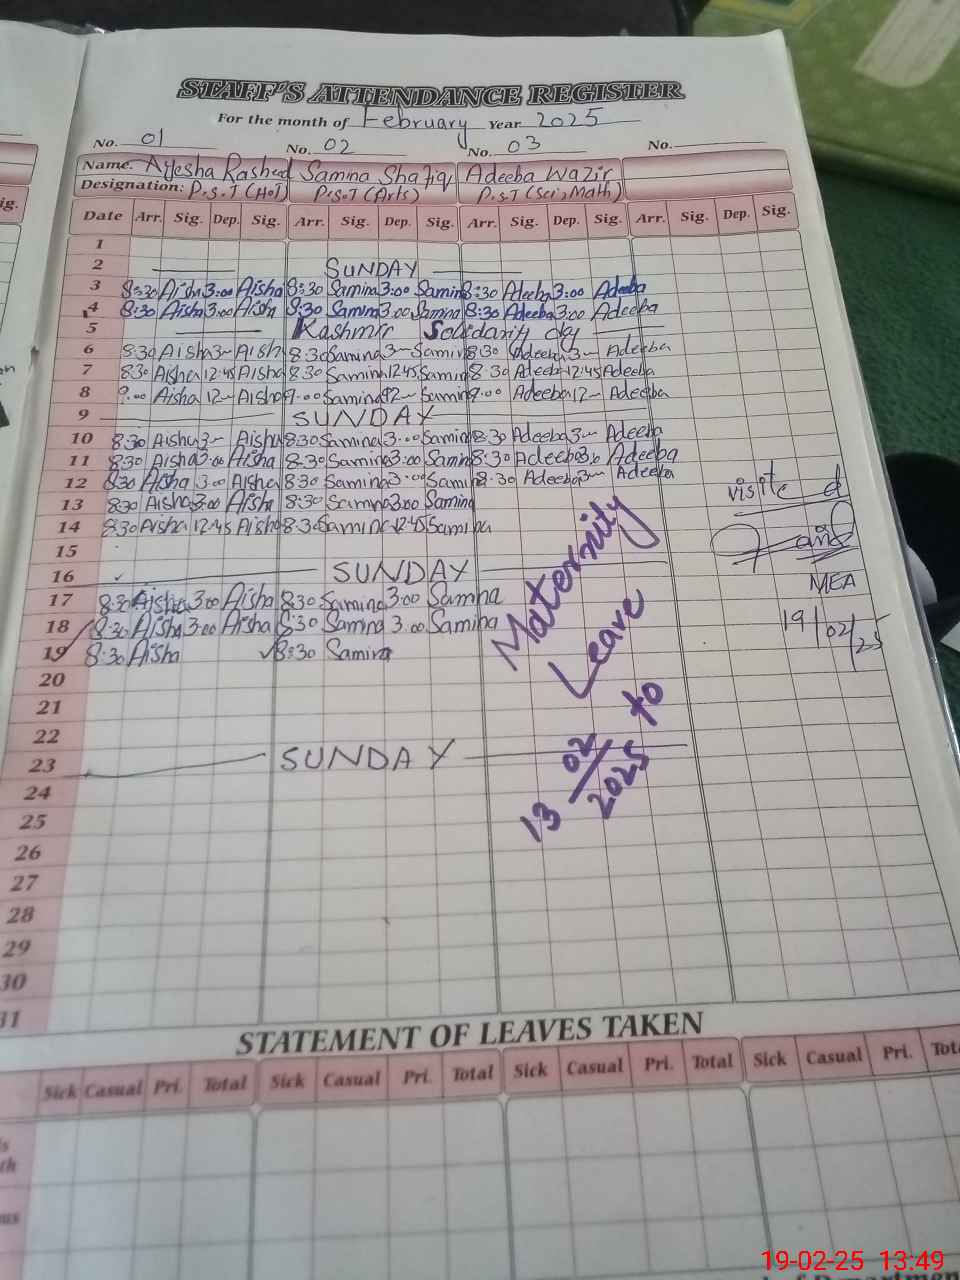 STAFF'S ATTENDANCE REGISTER
For the month of February Year 2025
No. 01 No. 02 No. 03 No.
Name. Ayesha Rasheed Samna Shafiq Adeeba Wazir
Designation: P.S.T (HoT) P.S.T (Arts) P.S.T (Sci, Math)
Date Arr. Sig. Dep. Sig. Arr. Sig. Dep. Sig. Arr. Sig. Dep. Sig. Arr. Sig. Dep. Sig.
1
2 SUNDAY
3 8:30 Aisha 3:00 Aisha 8:30 Samina 3:00 Samina 8:30 Adeeba 3:00 Adeeba
4 8:30 Aisha 3:00 Aisha 8:30 Samina 3:00 Samina 8:30 Adeeba 3:00 Adeeba
5 Kashmir Solidarity day
6 8:30 Aisha 3- Aisha 8:30 Samina 3- Samina 8:30 Adeeba 3- Adeeba
7 8:30 Aisha 12:45 Aisha 8:30 Samina 12:45 Samina 8:30 Adeeba 12:45 Adeeba
8 9:00 Aisha 12- Aisha 9:00 Samina 12- Samina 9:00 Adeeba 12- Adeeba
9 SUNDAY
10 8:30 Aisha 3- Aisha 8:30 Samina 3:00 Samina 8:30 Adeeba 3- Adeeba
11 8:30 Aisha 3:00 Aisha 8:30 Samina 3:00 Samina 8:30 Adeeba 3:00 Adeeba
12 8:30 Aisha 3:00 Aisha 8:30 Samina 3:00 Samina 8:30 Adeeba 3- Adeeba
13 8:30 Aisha 3:00 Aisha 8:30 Samina 3:00 Samina
14 8:30 Aisha 12:45 Aisha 8:30 Samina 12:45 Samina
15
16 SUNDAY
17 8:30 Aisha 3:00 Aisha 8:30 Samina 3:00 Samina
18 8:30 Aisha 3:00 Aisha 8:30 Samina 3:00 Samina
19 8:30 Aisha 8:30 Samina
20
21
22
23 SUNDAY
24
25
26
27
28
29
30
31
Maternity
Leave
13 02/2025 to
visited
MEA
19/02/25
STATEMENT OF LEAVES TAKEN
Sick Casual Pri. Total Sick Casual Pri. Total Sick Casual Pri. Total Sick Casual Pri. Tot
19-02-25 13:49